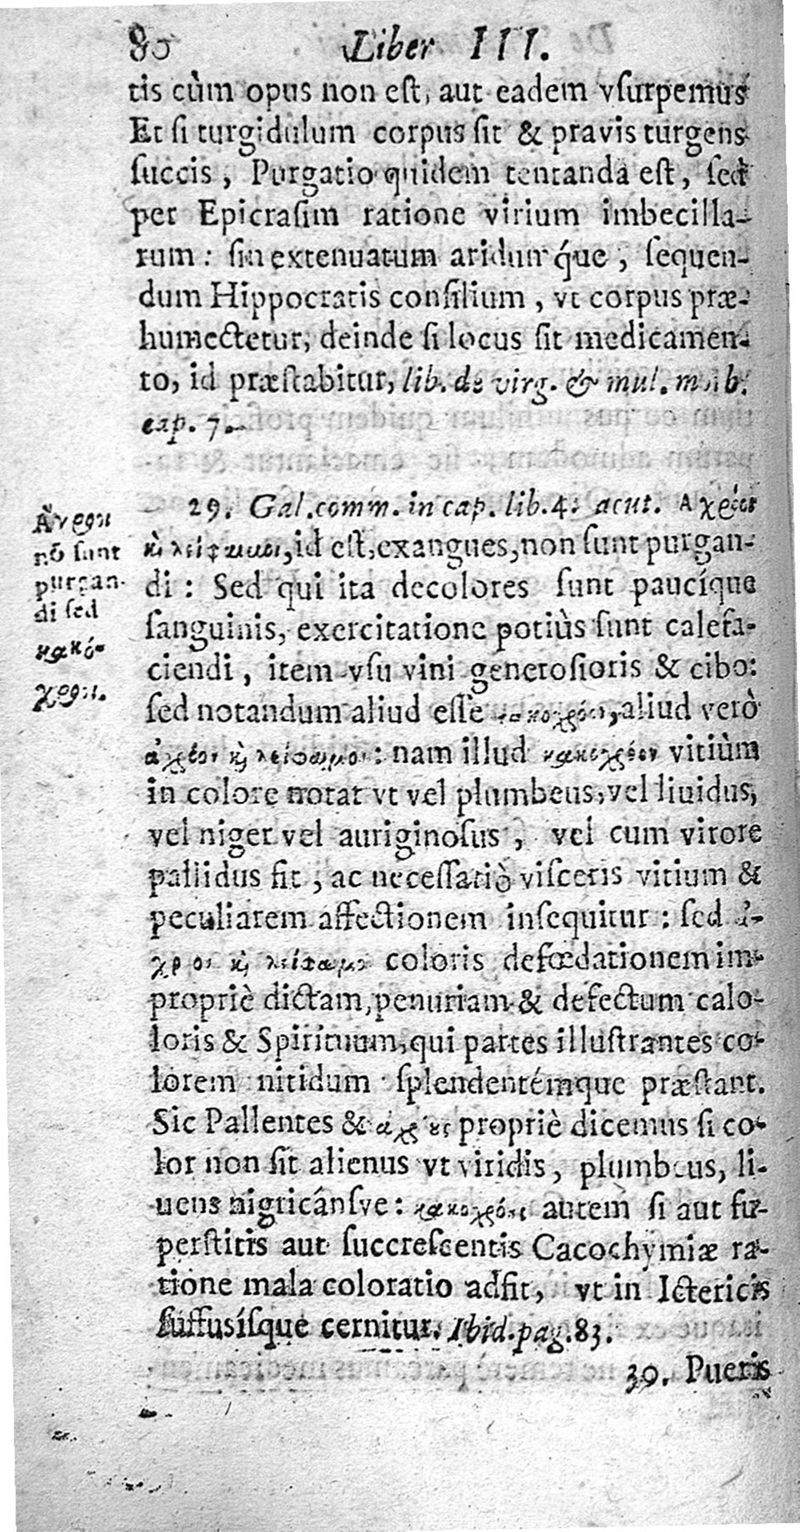 80 Liber III.
tis cùm opus non est, aut eadem vsurpemus
Et si turgidulum corpus sit & pravis turgens
succis, Purgatio quidem tentanda est, sed
per Epicrasim ratione virium imbecilla-
rum: sin extenuatum aridumq́ue, sequen-
dum Hippocratis consilium, vt corpus præ-
humectetur, deinde si locus sit medicamen-
to, id præstabitur, lib. de virg. & mul. morb.
cap. 7.
Ἄχροι
nō sunt
purgan-
di sed
κακό-
χροι.
29. Gal. comm. in cap. lib. 4. acut. Ἄχροοι
κ̀ λείφαιμοι, id est, exangues, non sunt purgan-
di: Sed qui ita decolores sunt paucíque
sanguinis, exercitatione potiùs sunt calefa-
ciendi, item vsu vini generosioris & cibo:
sed notandum aliud esse aliud verò
κ̀ nam illud vitiùm
in colore notat vt vel plumbeus, vel liuidus,
vel niger vel auriginosus, vel cum virore
pallidus sit, ac necessariò visceris vitium &
peculiarem affectionem insequitur: sed ἄ-
χροοι κ̀ coloris defœdationem im-
propriè dictam, penuriam & defectum calo-
loris & Spirituum, qui partes illustrantes co-
lorem nitidum splendentémque præstant.
Sic Pallentes & propriè dicemus si co-
lor non sit alienus vt viridis, plumbeus, li-
uens nigricánsve: autem si aut su-
perstitis aut succrescentis Cacochymiæ ra-
tione mala coloratio adsit, vt in Ictericis
suffusísque cernitur. Ibid. pag. 83.
30. Pueris